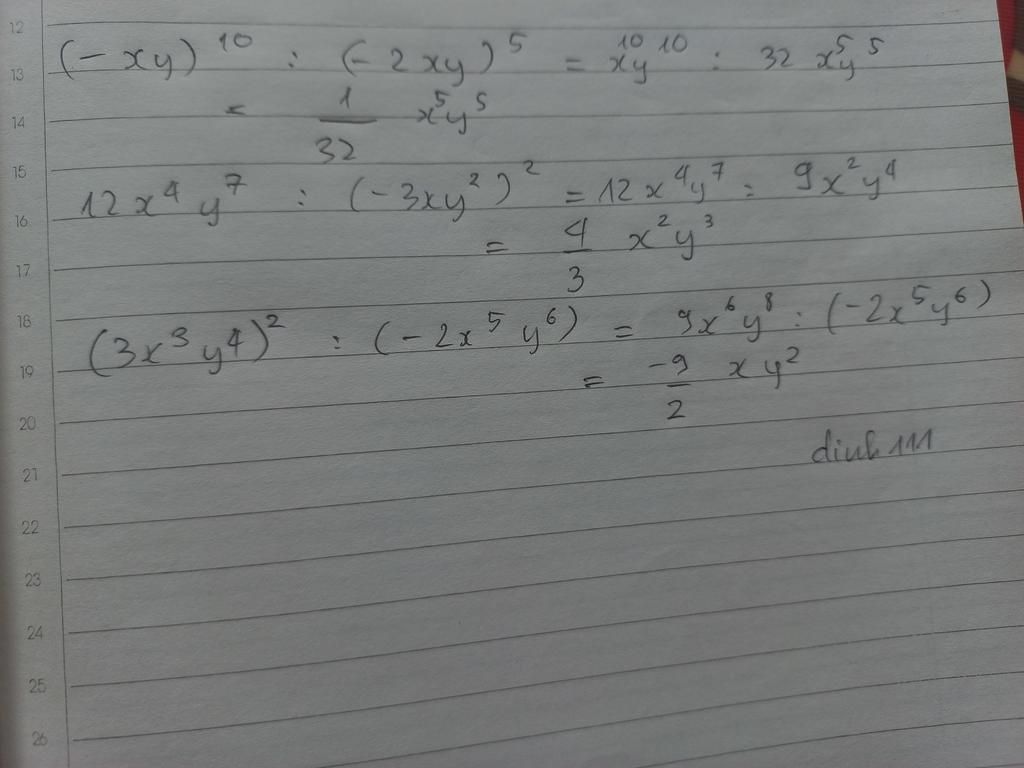 12
13 (-xy)¹⁰ : (-2xy)⁵ = x¹⁰y¹⁰ : 32 x⁵y⁵
14 = 1/32 x⁵y⁵
15
16 12x⁴ y⁷ : (-3xy²)² = 12x⁴y⁷ : 9x²y⁴
17 = 4/3 x²y³
18
19 (3x³y⁴)² : (-2x⁵ y⁶) = 9x⁶y⁸ : (-2x⁵y⁶)
20 = -9/2 xy²
21 dinh111
22
23
24
25
26